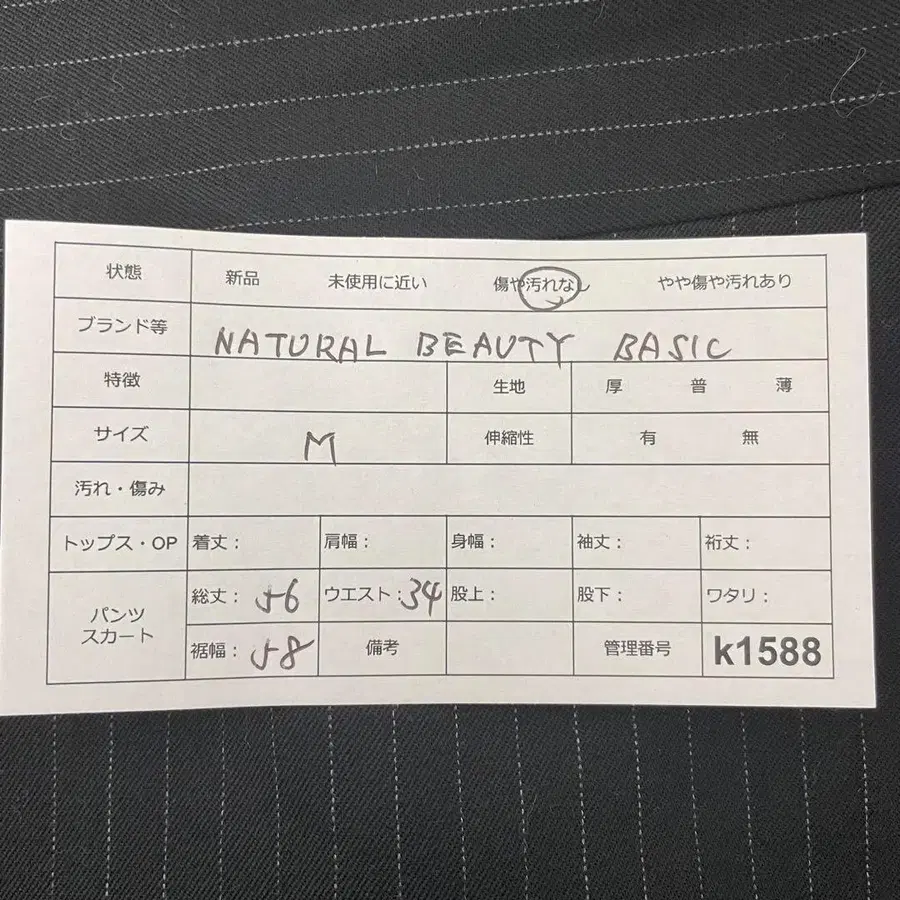 状態 新品 未使用に近い 傷や汚れなし やや傷や汚れあり
ブランド等 NATURAL BEAUTY BASIC
特徴 生地 厚 普 薄
サイズ M 伸縮性 有 無
汚れ・傷み
トップス・OP 着丈： 肩幅： 身幅： 袖丈： 裄丈：
パンツ スカート 総丈： 56 ウエスト：34 股上： 股下： ワタリ：
裾幅： 58 備考 管理番号 k1588